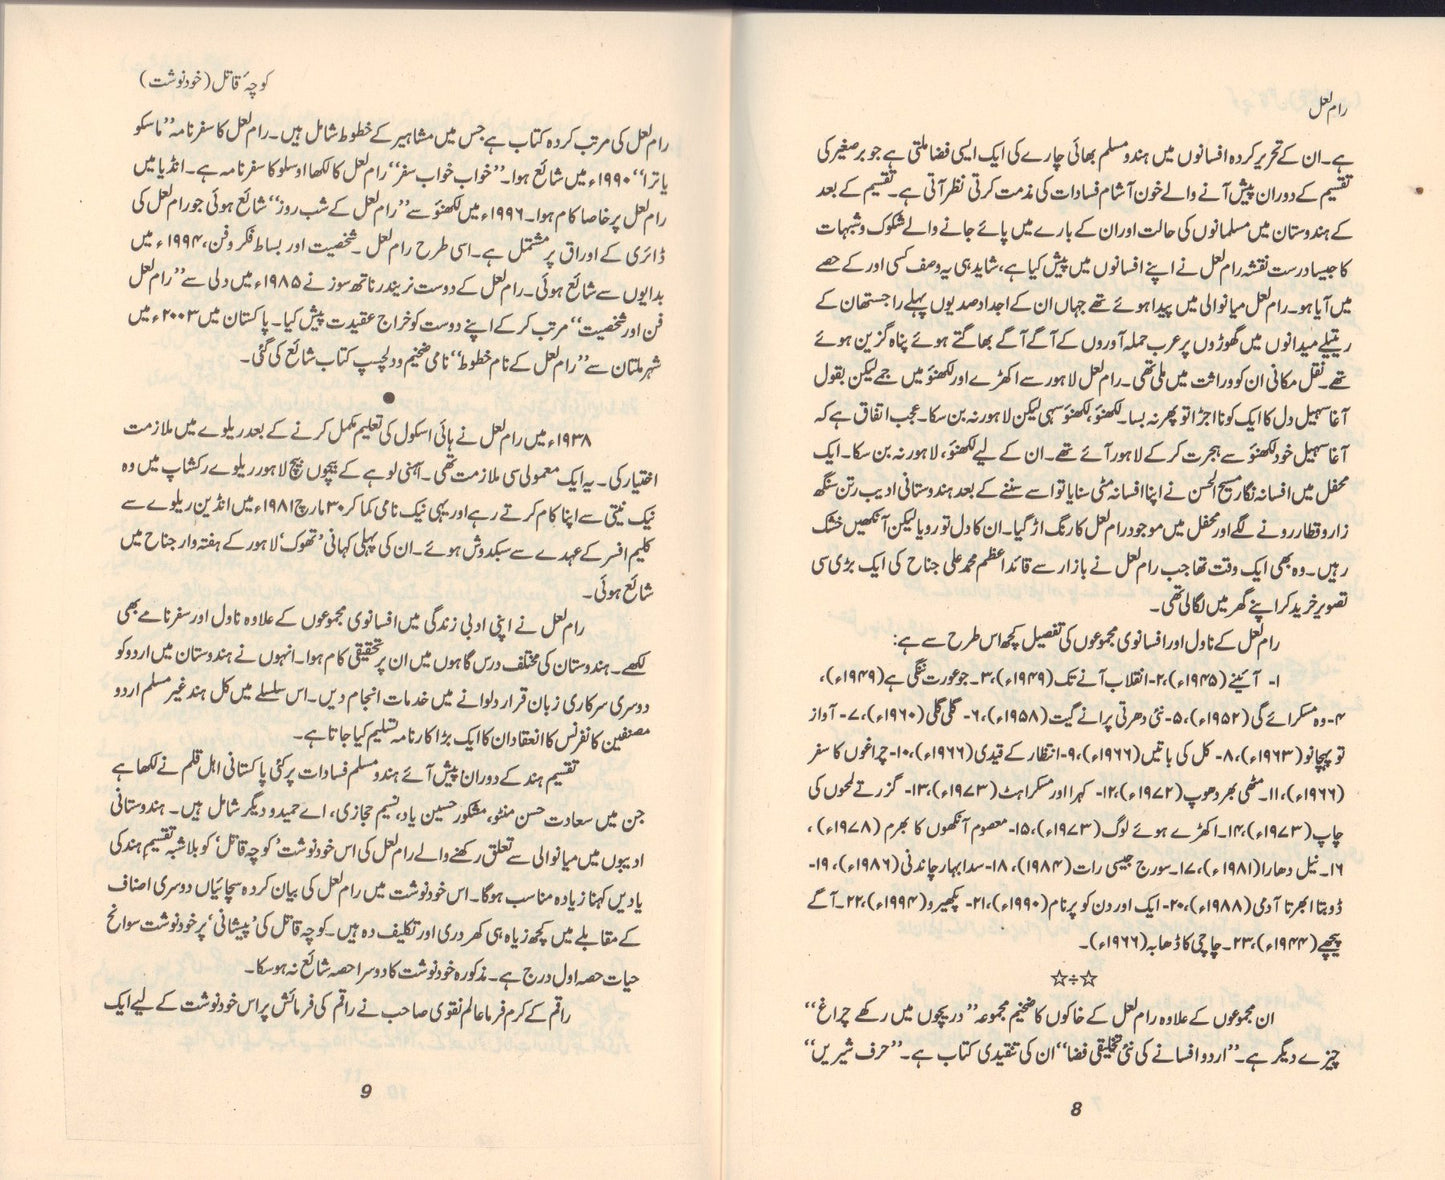 رام لعل
ہے۔ ان کے تحریر کردہ افسانوں میں ہندو مسلم بھائی چارے کی ایک ایسی فضا ملتی ہے جو برصغیر کی
تقسیم کے دوران پیش آنے والے خون آشام فسادات کی مذمت کرتی نظر آتی ہے۔ تقسیم کے بعد
کے ہندوستان میں مسلمانوں کی حالت اور ان کے بارے میں پائے جانے والے شکوک و شبہات
کا جیسا درست نقشہ رام لعل نے اپنے افسانوں میں پیش کیا ہے، شاید ہی یہ وصف کسی اور کے حصے
میں آیا ہو۔ رام لعل میانوالی میں پیدا ہوئے تھے جہاں ان کے اجداد صدیوں پہلے راجستھان کے
ریتیلے میدانوں میں گھوڑوں پر عرب حملہ آوروں کے آگے آگے بھاگتے ہوئے پناہ گزین ہوئے
تھے۔ نقل مکانی ان کو وراثت میں ملی تھی۔ رام لعل لاہور سے اکھڑے اور لکھنؤ میں جمے لیکن بقول
آغا سہیل دل کا ایک کونا اجڑا تو پھر نہ بسا۔ لکھنؤ، لکھنؤ سہی لیکن لاہور نہ بن سکا۔ عجب اتفاق ہے کہ
آغا سہیل خود لکھنؤ سے ہجرت کر کے لاہور آئے تھے۔ ان کے لیے لکھنؤ، لاہور نہ بن سکا۔ ایک
محفل میں افسانہ نگار مسیح الحسن نے اپنا افسانہ مٹی سنایا تو اسے سننے کے بعد ہندوستانی ادیب رتن سنگھ
زار و قطار رونے لگے اور محفل میں موجود رام لعل کا رنگ اڑ گیا۔ ان کا دل تو رویا لیکن آنکھیں خشک
رہیں۔ وہ بھی ایک وقت تھا جب رام لعل نے بازار سے قائد اعظم محمد علی جناح کی ایک بڑی سی
تصویر خرید کر اپنے گھر میں لگائی تھی۔
رام لعل کے ناول اور افسانوی مجموعوں کی تفصیل کچھ اس طرح سے ہے:
۱- آئینے (۱۹۴۵ء)، ۲- انقلاب آنے تک (۱۹۴۹ء)، ۳- جو عورت ننگی ہے (۱۹۴۹ء)،
۴- وہ مسکرائے گی (۱۹۵۲ء)، ۵- نئی دھرتی پرانے گیت (۱۹۵۸ء)، ۶- گلی گلی (۱۹۶۰ء)، ۷- آواز
تو پہچانو (۱۹۶۳ء)، ۸- کل کی باتیں (۱۹۶۶ء)، ۹- انتظار کے قیدی (۱۹۶۶ء)، ۱۰- چراغوں کا سفر
(۱۹۶۶ء)، ۱۱- مٹھی بھر دھوپ (۱۹۷۲ء)، ۱۲- کہرا اور مسکراہٹ (۱۹۷۳ء)، ۱۳- گزرتے لمحوں کی
چاپ (۱۹۷۳ء)، ۱۴- اکھڑے ہوئے لوگ (۱۹۷۳ء)، ۱۵- معصوم آنکھوں کا بھرم (۱۹۷۸ء)،
۱۶- نیل دھارا (۱۹۸۱ء)، ۱۷- سورج جیسی رات (۱۹۸۴ء)، ۱۸- سدا بہار چاندنی (۱۹۸۶ء)، ۱۹-
ڈوبتا ابھرتا آدمی (۱۹۸۸ء)، ۲۰- ایک اور دن کو پرنام (۱۹۹۰ء)، ۲۱- پکھیرو (۱۹۹۴ء)، ۲۲- آگے
پیچھے (۱۹۴۴ء)، ۲۳- چاچی کا ڈھابہ (۱۹۶۶ء)۔
☆÷☆
ان مجموعوں کے علاوہ رام لعل کے خاکوں کا ضخیم مجموعہ ”دریچوں میں رکھے چراغ“
چیزے دیگر ہے۔ ”اردو افسانے کی نئی تخلیقی فضا“ ان کی تنقیدی کتاب ہے۔ ”حرف شیریں“
8
کوچۂ قاتل (خود نوشت)
رام لعل کی مرتب کردہ کتاب ہے جس میں مشاہیر کے خطوط شامل ہیں۔ رام لعل کا سفر نامہ ”ماسکو
یاترا“ ۱۹۹۰ء میں شائع ہوا۔ ”خواب خواب سفر“ رام لعل کا لکھا اوسلو کا سفر نامہ ہے۔ انڈیا میں
رام لعل پر خاصا کام ہوا۔ ۱۹۹۶ء میں لکھنؤ سے ”رام لعل کے شب روز“ شائع ہوئی جو رام لعل کی
ڈائری کے اوراق پر مشتمل ہے۔ اسی طرح رام لعل۔ شخصیت اور بساط فکر و فن، ۱۹۹۴ء میں
بدایوں سے شائع ہوئی۔ رام لعل کے دوست نریندر ناتھ سوز نے ۱۹۸۵ء میں دلی سے ”رام لعل
فن اور شخصیت“ مرتب کر کے اپنے دوست کو خراج عقیدت پیش کیا۔ پاکستان میں ۲۰۰۳ء میں
شہر ملتان سے ”رام لعل کے نام خطوط“ نامی ضخیم و دلچسپ کتاب شائع کی گئی۔
●
۱۹۳۸ء میں رام لعل نے ہائی اسکول کی تعلیم مکمل کرنے کے بعد ریلوے میں ملازمت
اختیار کی۔ یہ ایک معمولی سی ملازمت تھی۔ آہنی لوہے کے بیچوں بیچ لاہور ریلوے رکشاپ میں وہ
نیک نیتی سے اپنا کام کرتے رہے اور یہی نیک نامی کما کر ۳۰ مارچ ۱۹۸۱ء میں انڈین ریلوے سے
کلیم افسر کے عہدے سے سبکدوش ہوئے۔ ان کی پہلی کہانی ’تھوک‘ لاہور کے ہفتہ وار جناح میں
شائع ہوئی۔
رام لعل نے اپنی ادبی زندگی میں افسانوی مجموعوں کے علاوہ ناول اور سفر نامے بھی
لکھے۔ ہندوستان کی مختلف درس گاہوں میں ان پر تحقیقی کام ہوا۔ انہوں نے ہندوستان میں اردو کو
دوسری سرکاری زبان قرار دلوانے میں خدمات انجام دیں۔ اس سلسلے میں کل ہند غیر مسلم اردو
مصنفین کانفرنس کا انعقاد ان کا ایک بڑا کارنامہ تسلیم کیا جاتا ہے۔
تقسیم ہند کے دوران پیش آئے ہندو مسلم فسادات پر کئی پاکستانی اہل قلم نے لکھا ہے
جن میں سعادت حسن منٹو، مشکور حسین یاد، نسیم حجازی، اے حمید و دیگر شامل ہیں۔ ہندوستانی
ادیبوں میں میانوالی سے تعلق رکھنے والے رام لعل کی اس خودنوشت ’کوچہ قاتل‘ کو بلاشبہ تقسیمِ ہند کی
یادیں کہنا زیادہ مناسب ہوگا۔ اس خودنوشت میں رام لعل کی بیان کردہ سچائیاں دوسری اصناف
کے مقابلے میں کچھ زیاہ ہی کھردری اور تکلیف دہ ہیں۔ کوچہ قاتل کی ’پیشانی‘ پر خودنوشت سوانح
حیات حصہ اول درج ہے۔ مذکورہ خودنوشت کا دوسرا حصہ شائع نہ ہوسکا۔
راقم کے کرم فرما عالم نقوی صاحب نے راقم کی فرمائش پر اس خودنوشت کے لیے ایک
9